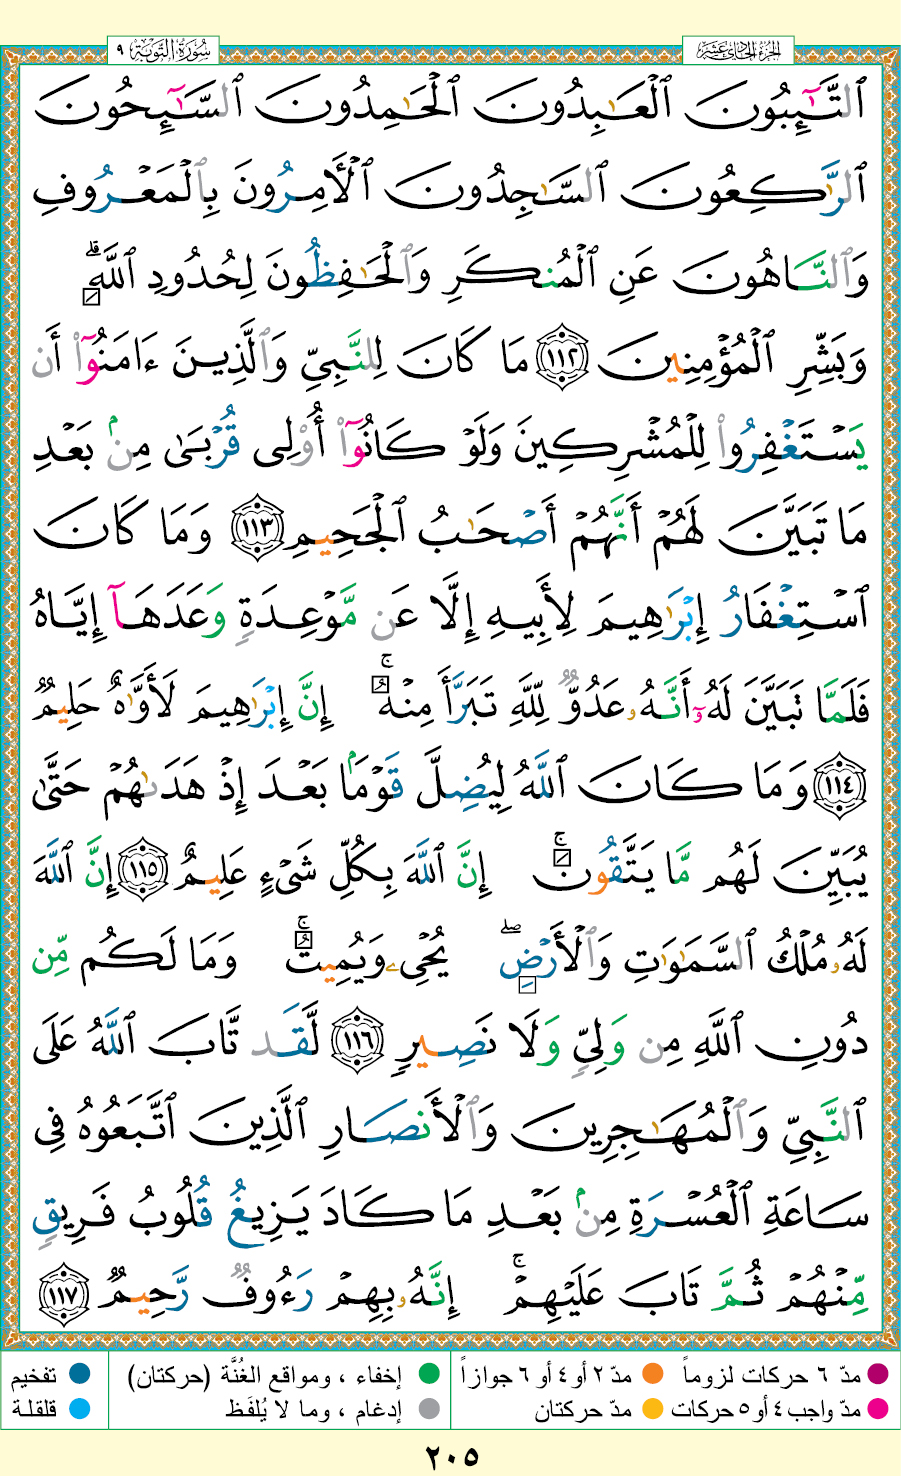 سُورَةُ التَّوۡبَةِ ٩ الجُزءُ الحَادِي عَشَر
ٱلتَّٰٓئِبُونَ ٱلۡعَٰبِدُونَ ٱلۡحَٰمِدُونَ ٱلسَّٰٓئِحُونَ
ٱلرَّٰكِعُونَ ٱلسَّٰجِدُونَ ٱلۡأٓمِرُونَ بِٱلۡمَعۡرُوفِ
وَٱلنَّاهُونَ عَنِ ٱلۡمُنكَرِ وَٱلۡحَٰفِظُونَ لِحُدُودِ ٱللَّهِۗ
وَبَشِّرِ ٱلۡمُؤۡمِنِينَ ١١٢ مَا كَانَ لِلنَّبِيِّ وَٱلَّذِينَ ءَامَنُوٓاْ أَن
يَسۡتَغۡفِرُواْ لِلۡمُشۡرِكِينَ وَلَوۡ كَانُوٓاْ أُوْلِي قُرۡبَىٰ مِنۢ بَعۡدِ
مَا تَبَيَّنَ لَهُمۡ أَنَّهُمۡ أَصۡحَٰبُ ٱلۡجَحِيمِ ١١٣ وَمَا كَانَ
ٱسۡتِغۡفَارُ إِبۡرَٰهِيمَ لِأَبِيهِ إِلَّا عَن مَّوۡعِدَةٖ وَعَدَهَآ إِيَّاهُ
فَلَمَّا تَبَيَّنَ لَهُۥٓ أَنَّهُۥ عَدُوّٞ لِّلَّهِ تَبَرَّأَ مِنۡهُۚ إِنَّ إِبۡرَٰهِيمَ لَأَوَّٰهٌ حَلِيمٞ
١١٤ وَمَا كَانَ ٱللَّهُ لِيُضِلَّ قَوۡمَۢا بَعۡدَ إِذۡ هَدَىٰهُمۡ حَتَّىٰ
يُبَيِّنَ لَهُم مَّا يَتَّقُونَۚ إِنَّ ٱللَّهَ بِكُلِّ شَيۡءٍ عَلِيمٌ ١١٥ إِنَّ ٱللَّهَ
لَهُۥ مُلۡكُ ٱلسَّمَٰوَٰتِ وَٱلۡأَرۡضِۖ يُحۡيِۦ وَيُمِيتُۚ وَمَا لَكُم مِّن
دُونِ ٱللَّهِ مِن وَلِيّٖ وَلَا نَصِيرٖ ١١٦ لَّقَد تَّابَ ٱللَّهُ عَلَى
ٱلنَّبِيِّ وَٱلۡمُهَٰجِرِينَ وَٱلۡأَنصَارِ ٱلَّذِينَ ٱتَّبَعُوهُ فِي
سَاعَةِ ٱلۡعُسۡرَةِ مِنۢ بَعۡدِ مَا كَادَ يَزِيغُ قُلُوبُ فَرِيقٖ
مِّنۡهُمۡ ثُمَّ تَابَ عَلَيۡهِمۡۚ إِنَّهُۥ بِهِمۡ رَءُوفٞ رَّحِيمٞ ١١٧
مدّ ٦ حركات لزوماً مدّ ٢ أو ٤ أو ٦ جوازاً إخفاء ، ومواقع الغُنَّة (حركتان) تفخيم
مدّ واجب ٤ أو ٥ حركات مدّ حركتان إدغام ، وما لا يُلفَظ قلقلة
٢٠٥